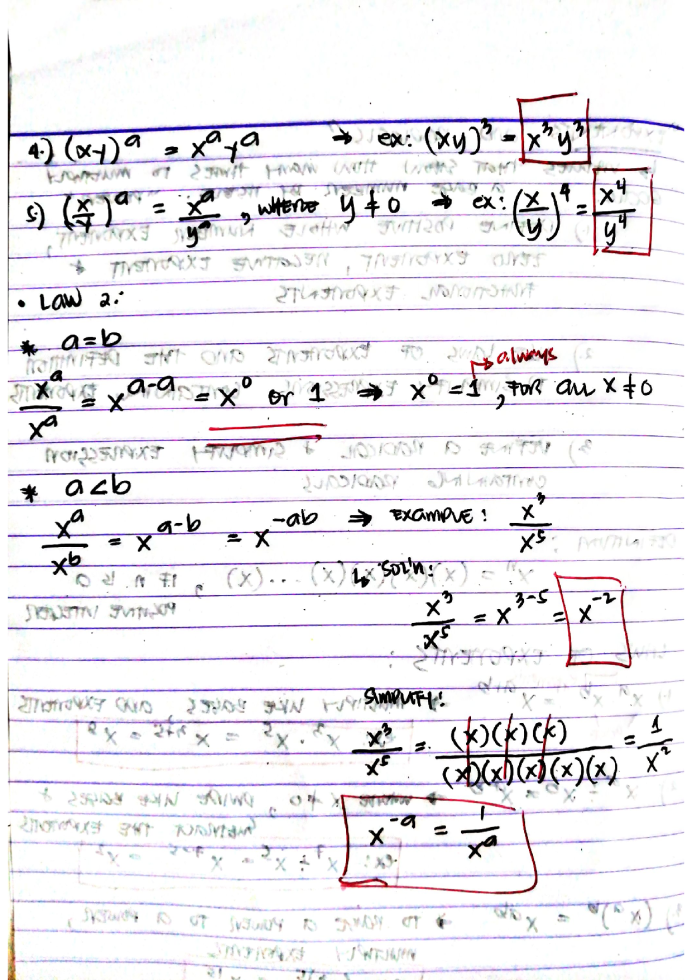 4.) (xy)^a = x^a y^a → ex: (xy)³ = x³y³
5) (x/y)^a = x^a/y^a, WHERE y ≠ 0 → ex: (x/y)⁴ = x⁴/y⁴
• LAW 2:
* a=b
→ always
x^a/x^a = x^(a-a) = x⁰ or 1 ⇒ x⁰ = 1, FOR all x ≠ 0
* a<b
x^a/x^b = x^(a-b) = x^(-ab) ⇒ EXAMPLE: x³/x⁵
↳ SOL'n:
x³/x⁵ = x^(3-5) = x^(-2)
SIMPLIFY:
x³/x⁵ = (x)(x)(x)/(x)(x)(x)(x)(x) = 1/x²
x^(-a) = 1/x^a